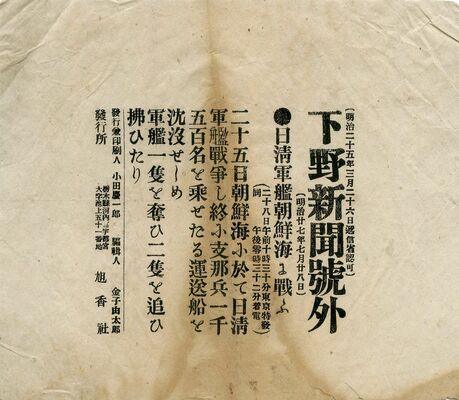 （明治二十五年三月二十六日遞信省認可）
下野新聞號外
（明治廿七年七月廿八日）
日清軍艦朝鮮海に戰ふ
（二十八日午前十時三十分東京特發
同 午後零時三十二分着電）
二十五日朝鮮海に於て日清
軍艦戰爭し終に支那兵一千
五百名を乘せたる運送船を
沈沒せしめ
軍艦一隻を奪ひ二隻を追ひ
拂ひたり
發行兼印刷人 小田慶一郎 編輯人 金子由太郎
栃木縣河内郡宇都宮
大字池上五十一番地
發行所 旭香社